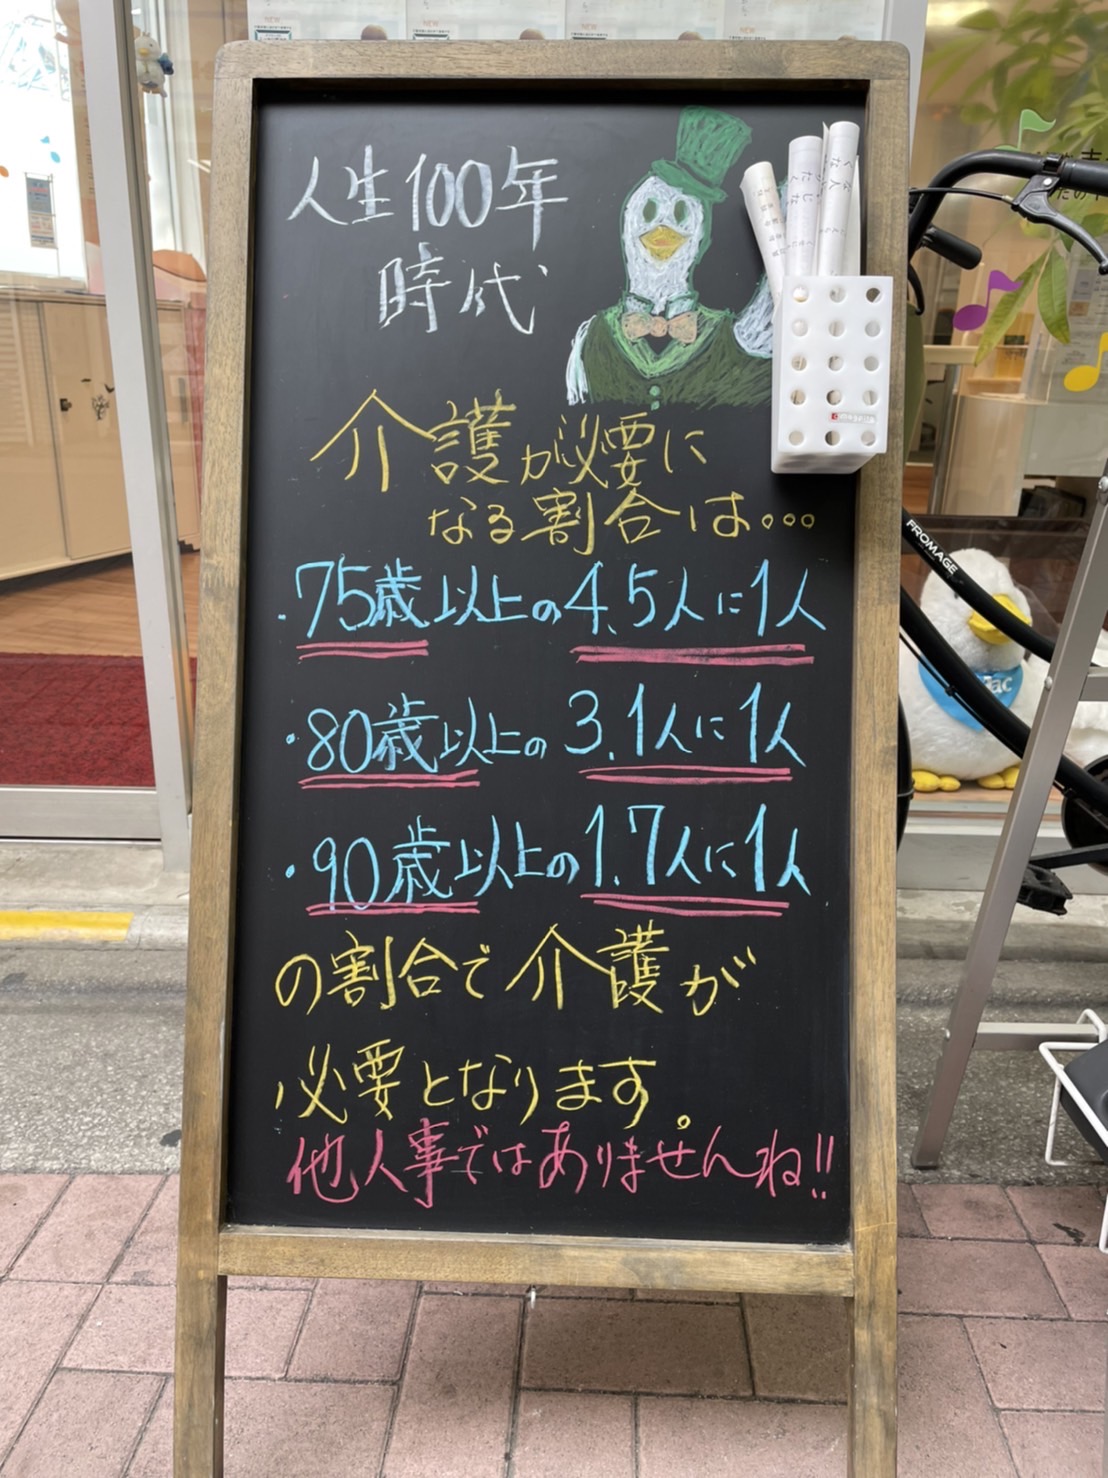 人生100年
時代
介護が必要に
なる割合は...
・75歳以上の4.5人に1人
・80歳以上の3.1人に1人
・90歳以上の1.7人に1人
の割合で介護が
必要となります。
他人事ではありませんね!!
FROMAGE
NEW
NEW
NEW
NEW